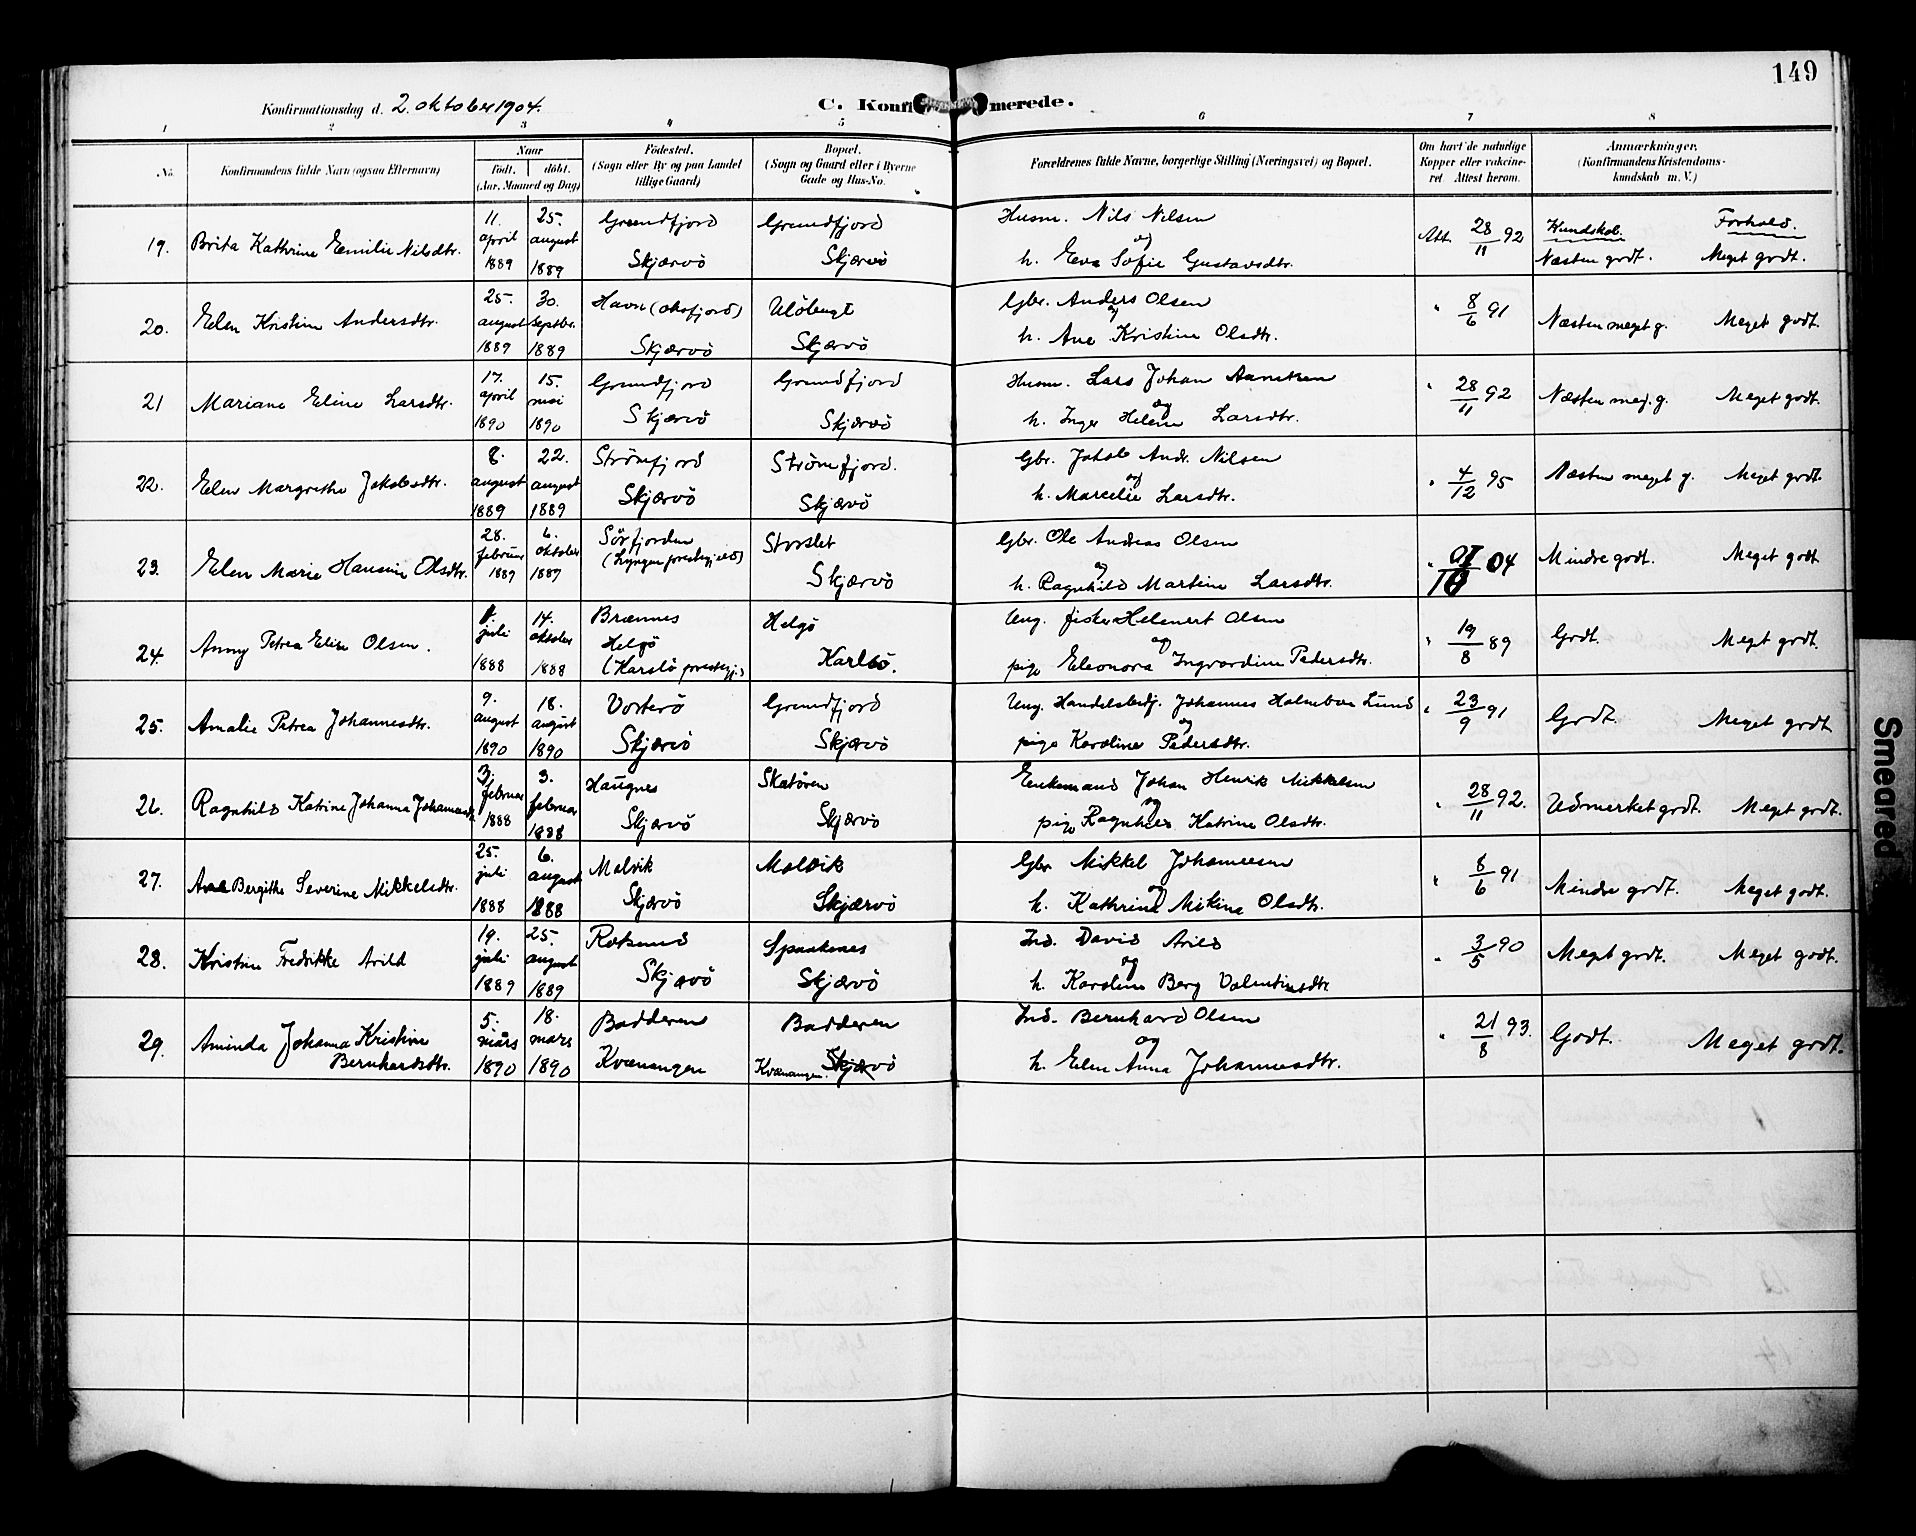 149
Konfirmationsdag d. 2. oktober 1904.
C. Konfirmerede.
1 2 3 4 5 6 7 8
No. Konfirmandens fulde Navn (ogsaa Efternavn) Naar födt. döbt. (Aar, Maaned og Dag) Födested. (Sogn eller By og paa Landet tillige Gaard) Bopæl. (Sogn og Gaard eller i Byerne Gade og Hus-No. Forældrenes fulde Navne, borgerlige Stilling (Næringsvei) og Bopæl. Om havt de naturlige Kopper eller vakcineret Attest herom. Anmærkninger. (Konfirmandens Kristendomskundskab m. V.)
19. Brita Kathrine Emilie Nilsdtr. 11. april 1889 25. august 1889 Grundfjord Skjærvö Grundfjord Skjærvö Husm. Nils Nilsen og h. Eva Sofie Gustavsdtr. Att. 28/11 92 Kundskab. Næsten godt. Forhold. Meget godt.
20. Elen Kristine Andersdtr. 25. august 1889 30. septbr. 1889 Havn (oksfjord) Skjærvö Ulöbugt Skjærvö Gbr. Anders Olsen og h. Ane Kristine Olsdtr. " 8/6 91 Næsten meget g. Meget godt.
21 Mariane Eline Larsdtr. 17. april 1890 15. mai 1890 Grundfjord Skjærvö Grundfjord Skjærvö Husm. Lars Johan og h. Inger Helene Larsdtr. " 28/11 92 Næsten meg. g. Meget godt.
22. Elen Margrethe Jakobsdtr. 8. august 1889 22. august 1889 Strömfjord Skjærvö Strömfjord. Skjærvö Gbr. Jakob Andr. Nilsen og h. Marcelie Larsdtr. " 4/12 95 Næsten meget g. Meget godt.
23. Elen Marie Hansine Olsdtr. 28. februar 1889 6. oktober 1889 Sörfjorden (Lyngen prestegjeld) Storslet Skjærvö Gbr. Ole Andreas Olsen og h. Ragnhild Martine Larsdtr. " 04 Mindre godt. Meget godt
24. Anny Petrea Elise Olsen. juli 1888 14. oktober 1888 Brænnes Helgö (Karslö prestegj.) Helgö Karlsö. Ung. fisker Helmert Olsen og pige Eleonora Ingvardine Pedersdtr. " 19/8 89 Godt. Meget godt.
25. Amalie Petrea Johannesdtr. 9. august 1890 18. august 1890 Vorterö Skjærvö Grundfjord Skjærvö Ung. Handelsbetj. Johannes Holmboe Lund og pige Karoline Pedersdtr. " 23/9 91 Godt. Meget godt
26. Ragnhild Katrine Johanna Johannesdtr 3. februar 1888 3. februar 1888 Haugnes Skjærvö Skatören Skjærvö Enkemand Johan Henrik Mikkelsen og pige Ragnhild Katrine Olsdtr. " 28/11 92. Udmerket godt. Meget godt.
27. Ane Bergithe Severine Mikkelsdtr. 25. juli 1888 6. august 1888 Malvik Skjærvö Molvik Skjærvö Gbr Mikkel Johannesen og h. Kathrine Mikine Olsdtr. " 8/6 91 Mindre godt. Meget godt.
28. Kristine Fredrikke Arild 19. juli 1889 25. august 1889 Roksund Skjærvö Spaakenes Skjærvö Ind. David Arild og h. Karoline Berg Valentinsdtr " 3/5 90 Meget godt. Meget godt.
29. Aminda Johanna Kristine Bernhardsdtr. 5. mars 1890 18. mars 1890 Badderen Kvænangen Badderen Kvænangen. Skjærvö Ind. Bernhard Olsen og h. Elen Anna Johannesdtr. " 21/8 93. Godt. Meget godt.
Smeared